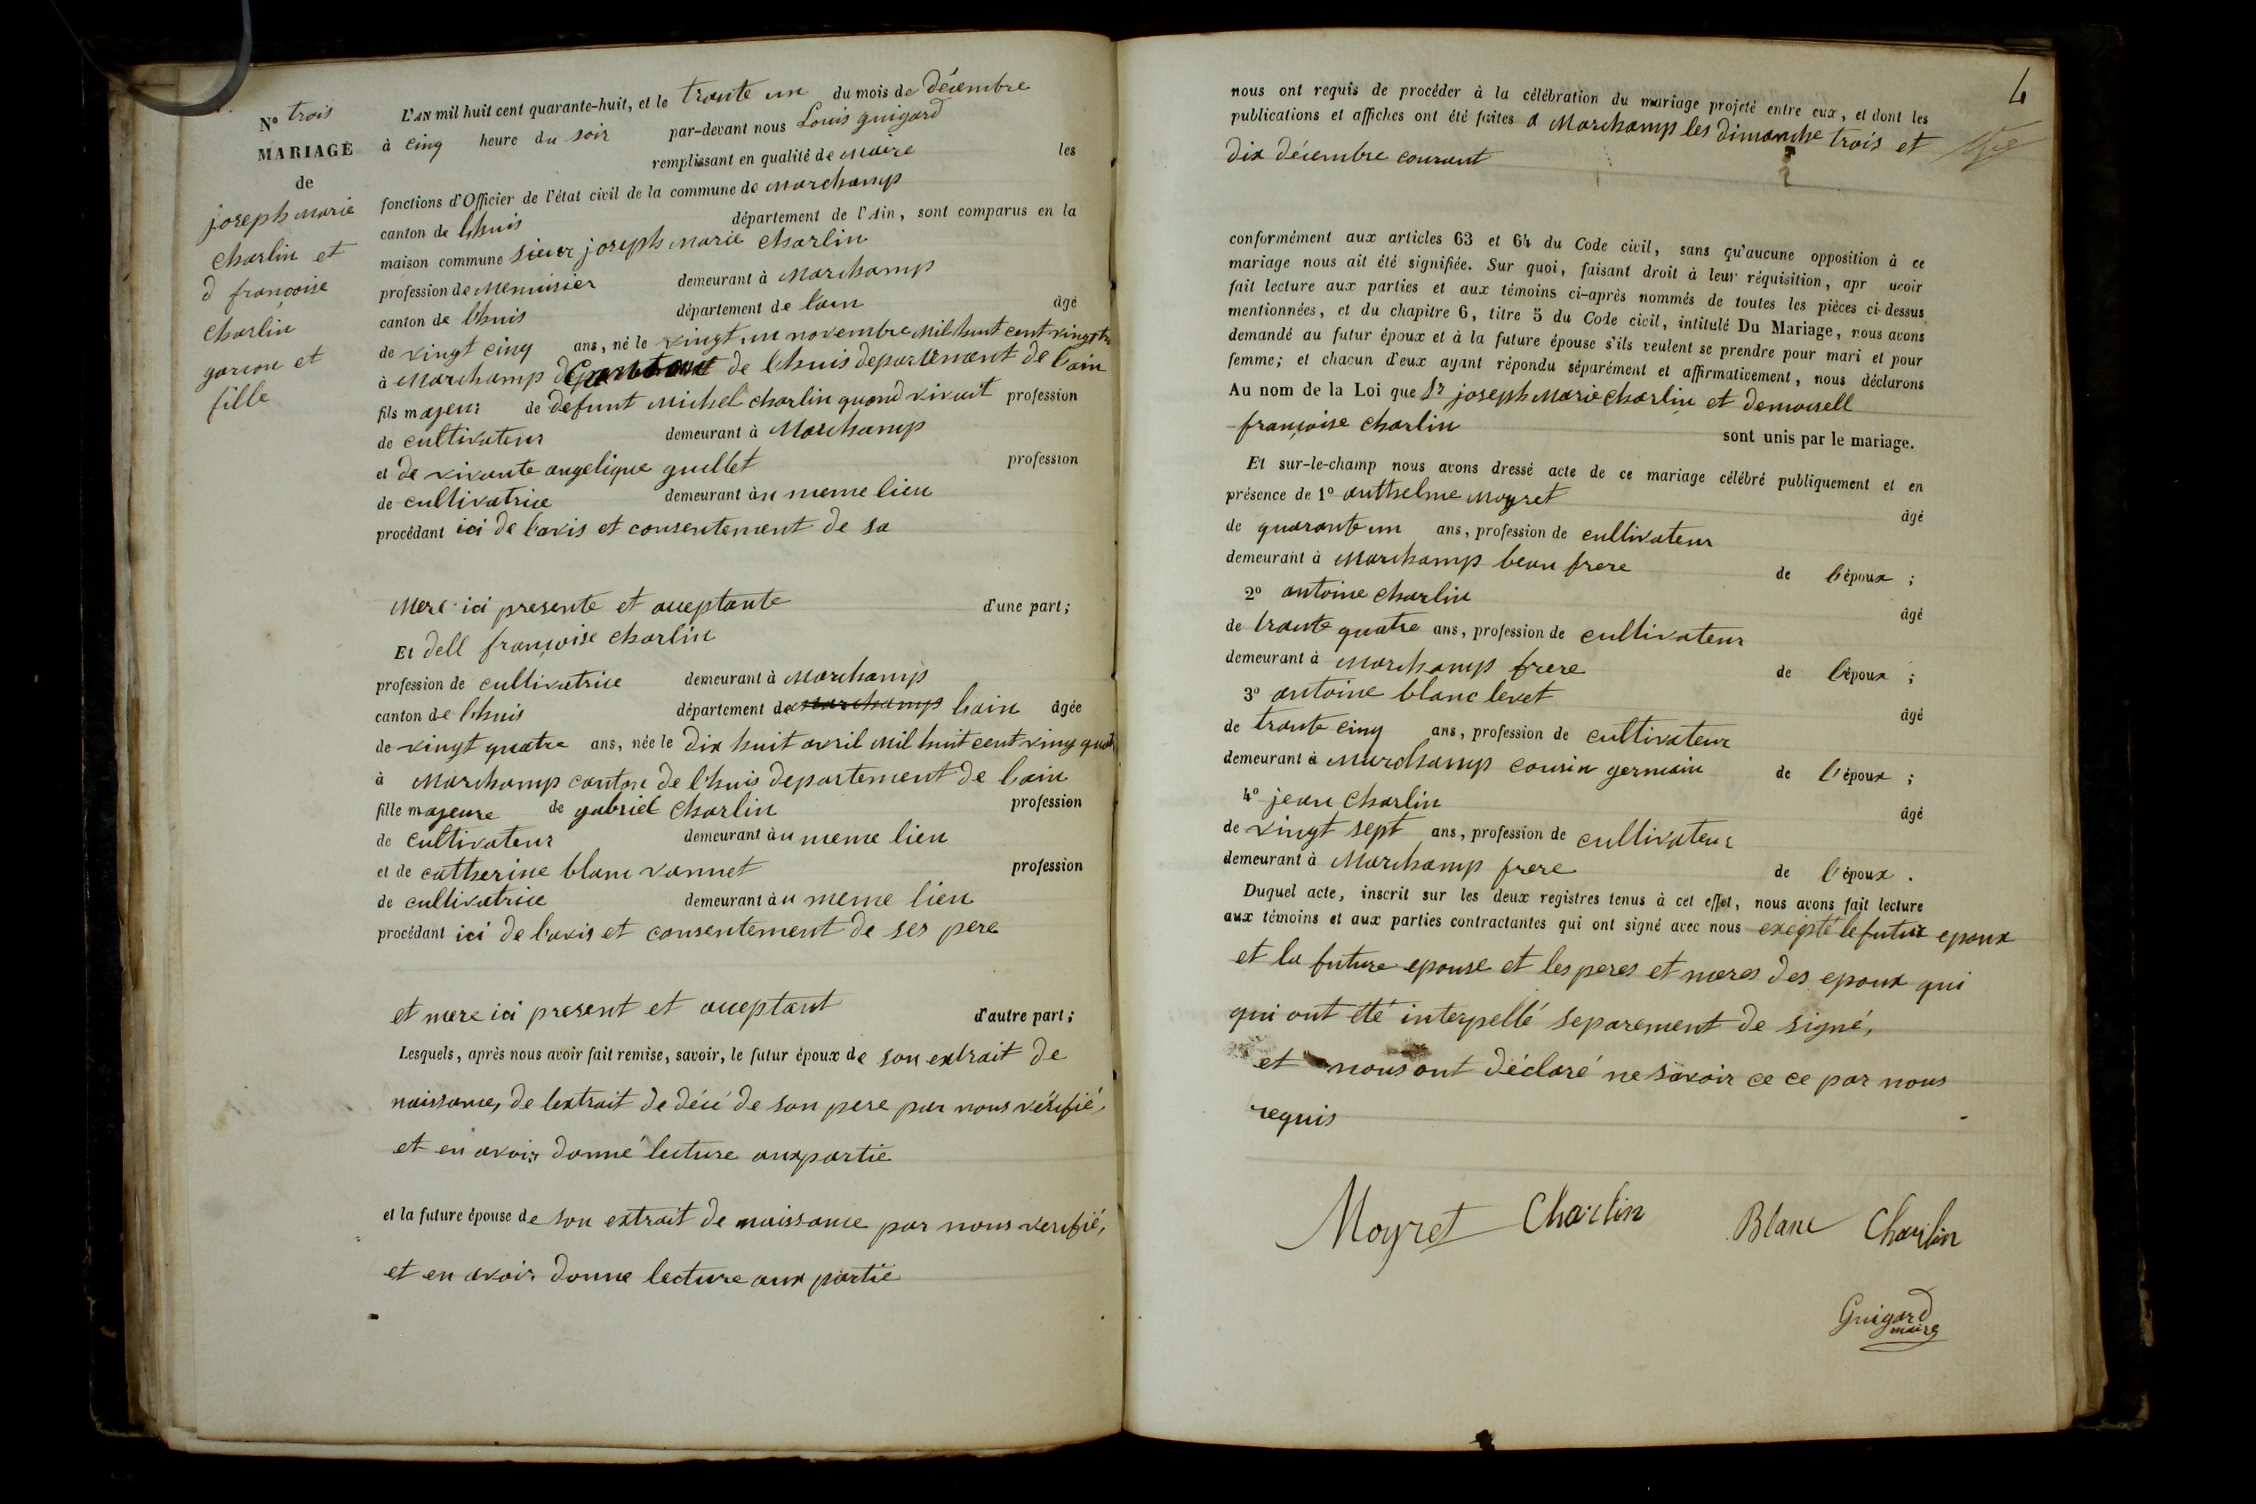 N° trois
MARIAGE
de
joseph marie
charlin et
d françoise
charlin
garcon et
fille
L'AN mil huit cent quarante-huit, et le trante un du mois de décembre
à cinq heure du soir par-devant nous Louis guigard
remplissant en qualité de maire les
fonctions d'Officier de l'état civil de la commune de marchamp
canton de lhuis département de l'Ain, sont comparus en la
maison commune sieur joseph marie charlin
profession de menuisier demeurant à marchamp
canton de lhuis département de lain âgé
de vingt cinq ans, né le vingt un novembre mil huit cent vingt
à marchamp de lhuis departement de lain
fils majeur de défunt michel charlin quand vivait profession
de cultivateur demeurant à Marchamp
et de vivante angelique guillet profession
de cultivatrice demeurant àu meme lieu
procédant ici de lavis et consentement de sa
mere ici presente et aceptante d'une part;
Et dell françoise charlin
profession de cultivatrice demeurant à marchamp
canton de lhuis département de marchamp lain âgée
de vingt quatre ans, née le dix huit avril mil huit cent vingt
à marchamp canton de lhuis departement de lain
fille majeure de gabriel charlin profession
de cultivateur demeurant àu meme lieu
et de catherine blanc vannet profession
de cultivatrice demeurant àu meme lieu
procédant ici de lavis et consentement de ses pere
et mere ici present et aceptant d'autre part;
Lesquels, après nous avoir fait remise, savoir, le futur époux de son extrait de
naissance, de lextrait de décé de son pere par nous vérifié,
et en avoir donné lecture aux partie
et la future épouse de son extrait de naissance par nous verifié,
et en avoir donne lecture aux partie
4
nous ont requis de procéder à la célébration du mariage projeté entre eux, et dont les
publications et affiches ont été faites a Marchamp les dimanche trois et
dix décembre courant
conformément aux articles 63 et 64 du Code civil, sans qu'aucune opposition à ce
mariage nous ait été signifiée. Sur quoi, faisant droit à leur réquisition, apr avoir
fait lecture aux parties et aux témoins ci-après nommés de toutes les pièces ci-dessus
mentionnées, et du chapitre 6, titre 5 du Code civil, intitulé Du Mariage, nous avons
demandé au futur époux et à la future épouse s'ils veulent se prendre pour mari et pour
femme; et chacun d'eux ayant répondu séparément et affirmativement, nous déclarons
Au nom de la Loi que Sr joseph marie charlin et demoisell
françoise charlin sont unis par le mariage.
Et sur-le-champ nous avons dressé acte de ce mariage célébré publiquement et en
présence de 1° anthelme moyret âgé
de quarante un ans, profession de cultivateur
demeurant à marchamp beau frere de l'époux ;
2° antoine charlin âgé
de trante quatre ans, profession de cultivateur
demeurant à marchamp frere de l'époux ;
3° antoine blanc levet âgé
de trante cinq ans, profession de cultivateur
demeurant à marchamp cousin germain de l'époux ;
4° jean charlin âgé
de vingt sept ans, profession de cultivateur
demeurant à Marchamp frere de l'époux .
Duquel acte, inscrit sur les deux registres tenus à cet effet, nous avons fait lecture
aux témoins et aux parties contractantes qui ont signé avec nous exepté le futur epoux
et la future epouse et les peres et meres des epoux qui
qui ont été interpellé separement de signé,
et nous ont déclaré ne savoir ce ce par nous
requis
Moyret Charlin Blanc Charlin
Guigard
maire